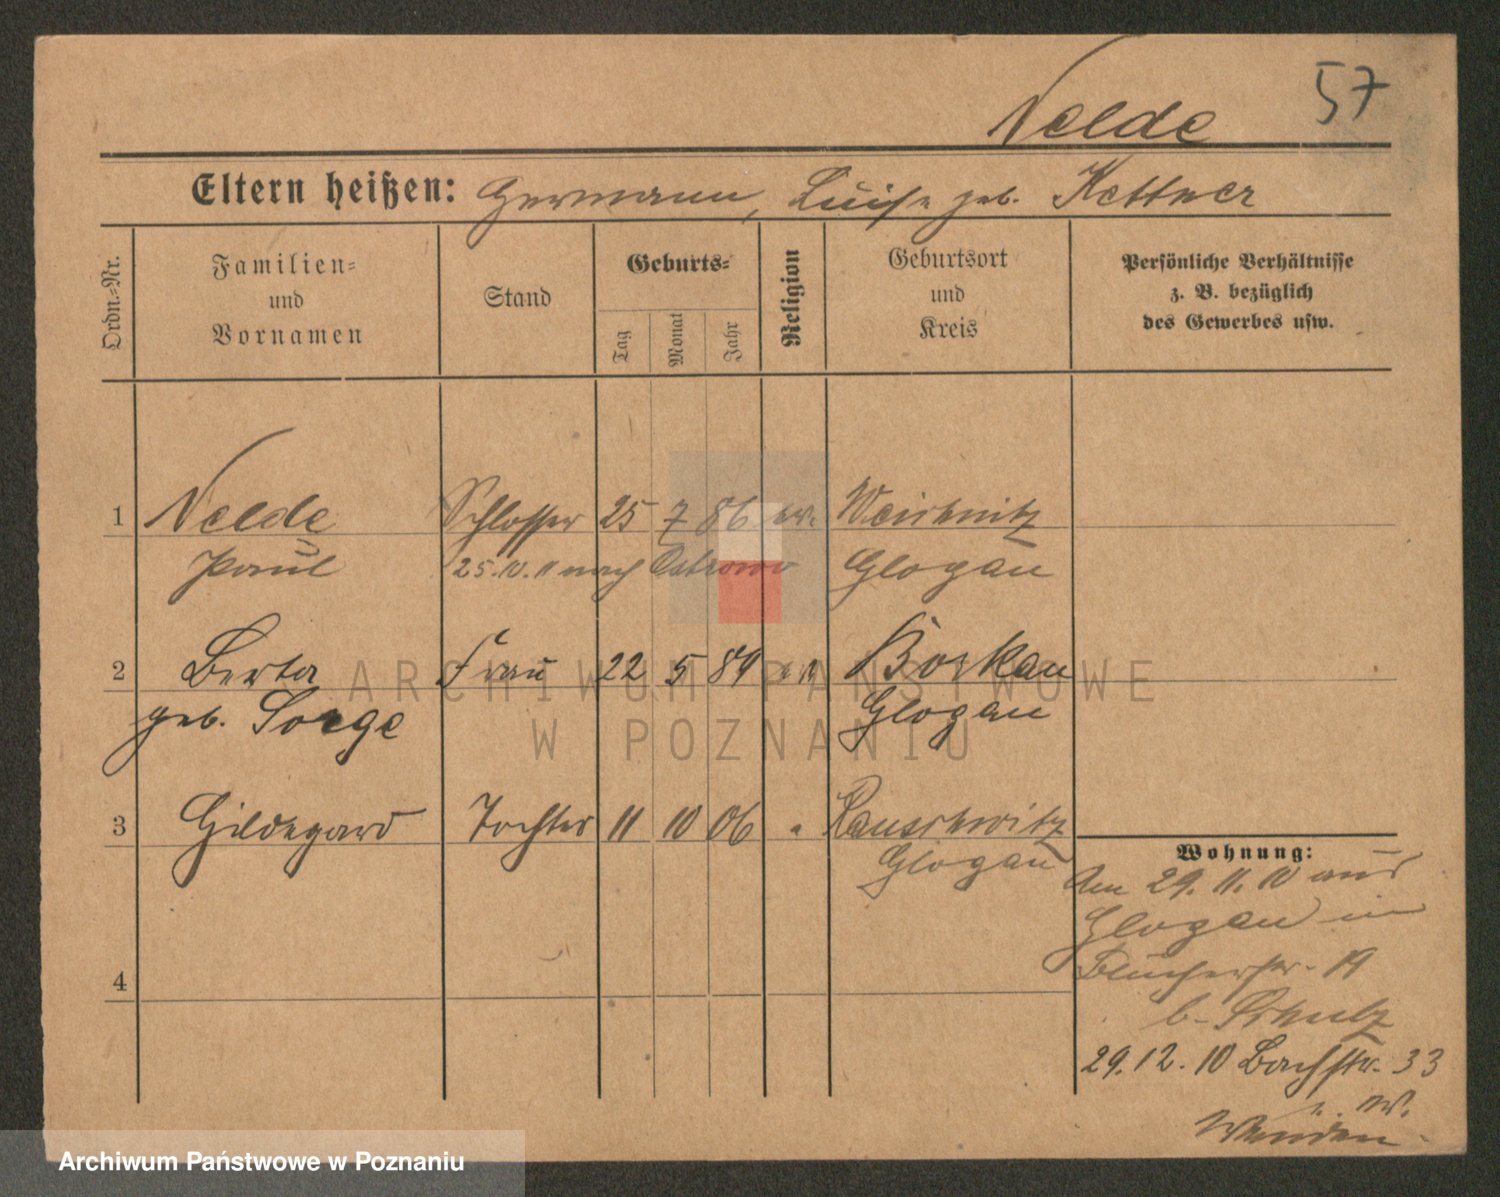 57
Nelde
Eltern heißen: Hermann, Luise geb. Kettner
Ordn.-Nr.
Familien-
und
Vornamen
Stand
Geburts-
Tag
Monat
Jahr
Religion
Geburtsort
und
Kreis
Persönliche Verhältnisse
z. B. bezüglich
des Gewerbes usw.
1 Nelde Schlosser 25 7 86 ev.
Paul 25.10.11 nach Ostrowo Glogau
2 Berta Frau 22 5 89 Borkau
geb. Sorge Glogau
3 Hildegard Tochter 11 10 06 " Rauschwitz
Glogau
4
Wohnung:
Am 29.11.10 aus
Glogau in
Blücherstr. 19
b. Schulz
29.12.10 Bachstr. 33
ARCHIWUM PAŃSTWOWE
W POZNANIU
Archiwum Państwowe w Poznaniu